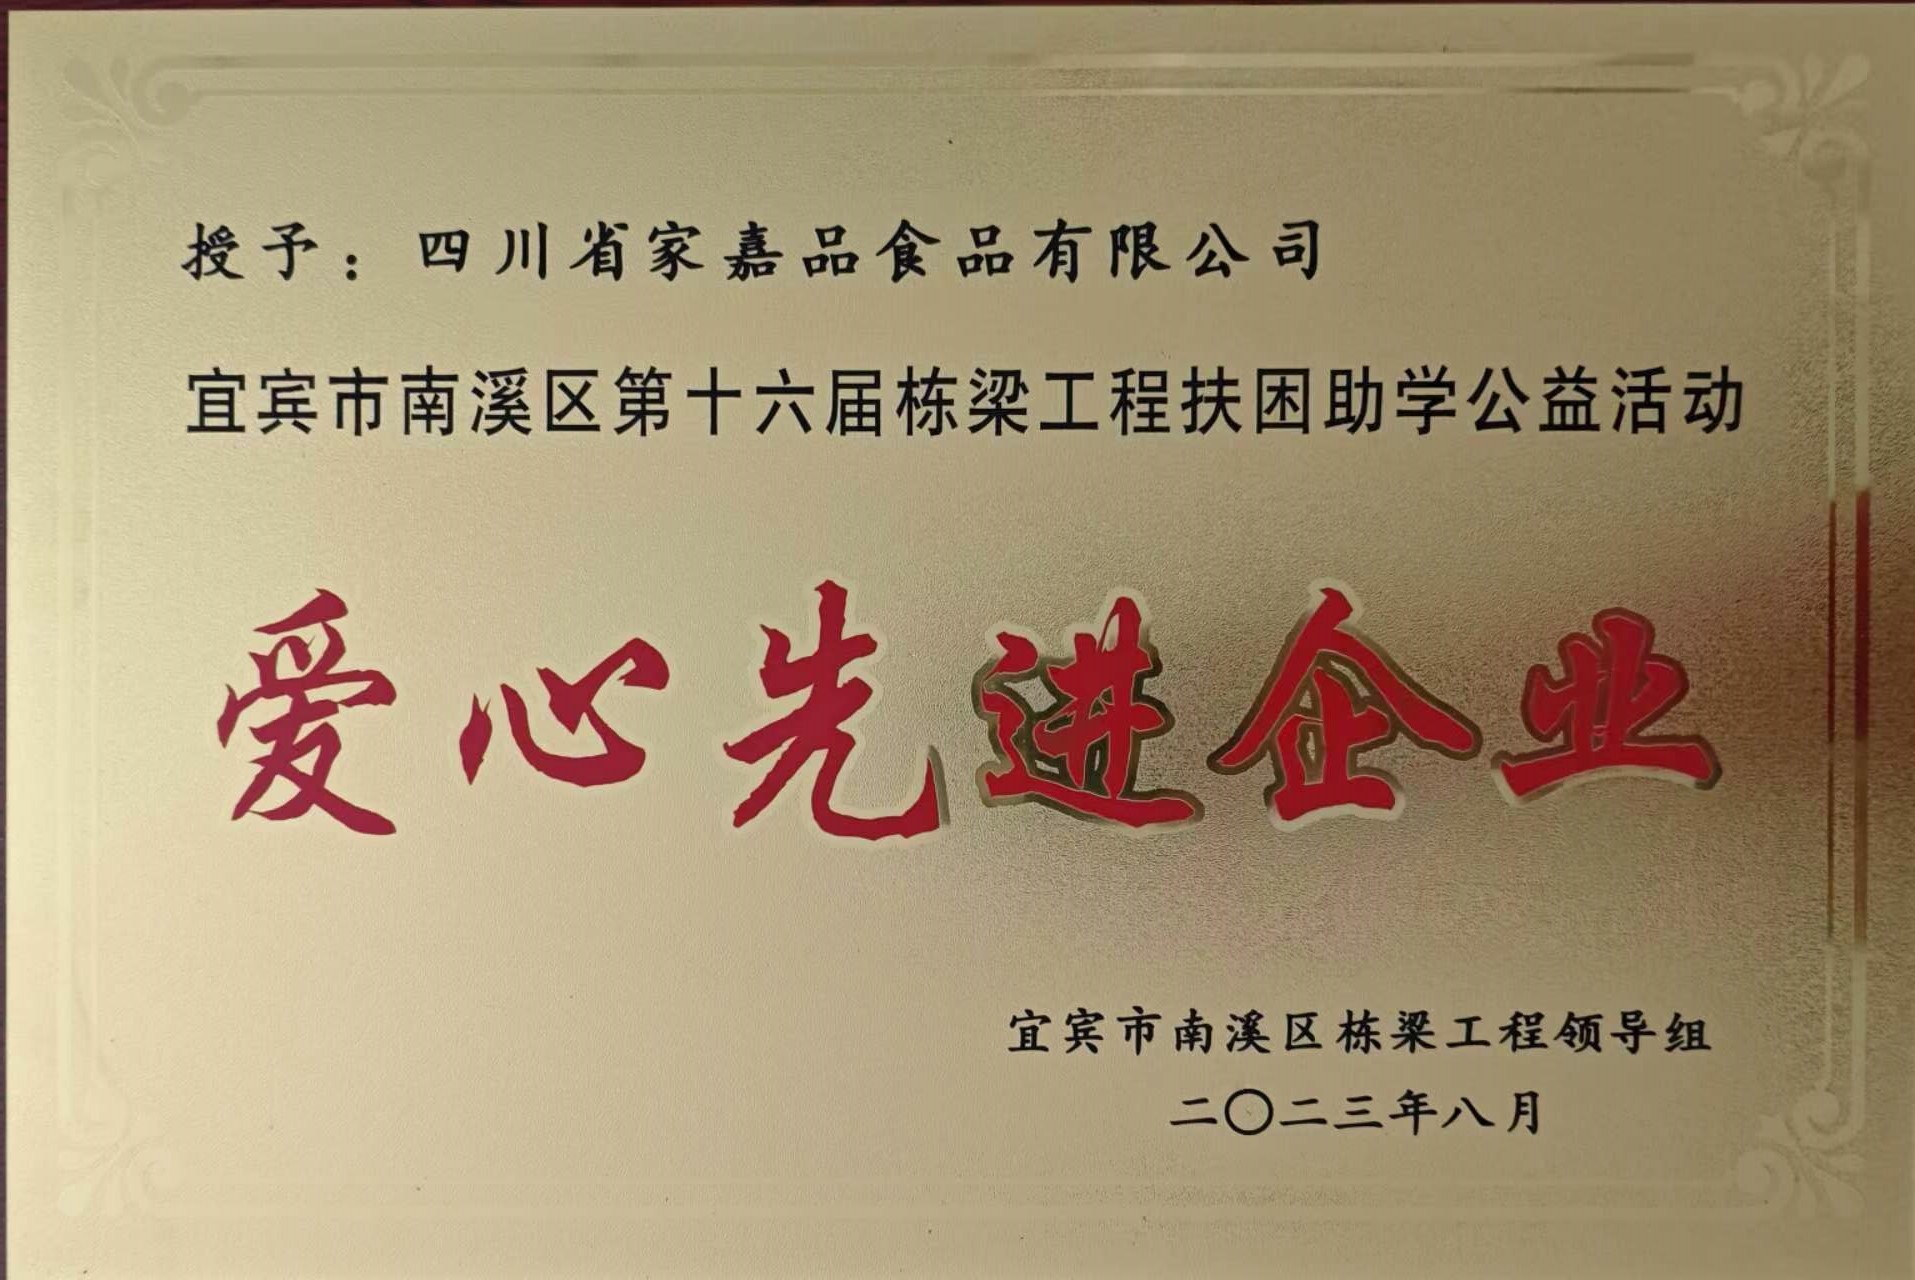 授予：四川省家嘉品食品有限公司
宜宾市南溪区第十六届栋梁工程扶困助学公益活动
爱心先进企业
宜宾市南溪区栋梁工程领导组
二〇二三年八月